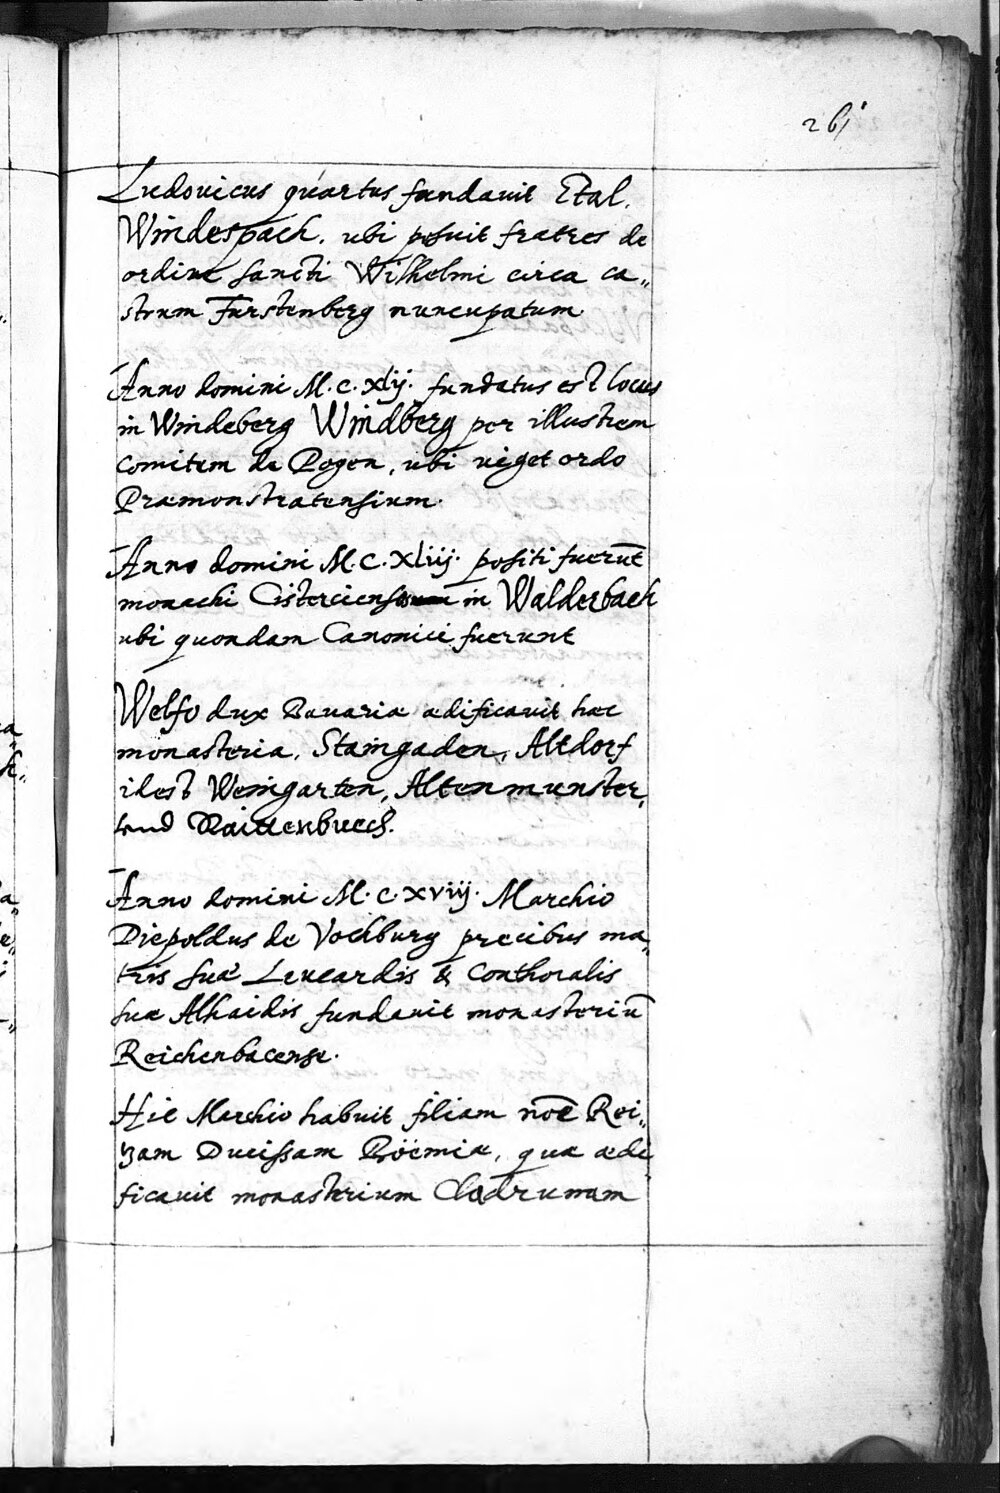 261
Ludovicus quartus fundavit Etal.
Windespach. ubi posuit fratres de
ordine sancti Wilhelmi circa ca„
strum Furstenberg nuncupatum
Anno domini M.C.xlij. fundatus est locus
in Windeberg Windberg per illustrem
comitem de Pogen, ubi viget ordo
Præmonstratensium.
Anno domini M.C.xliij. positi fuerūt
monachi in Walderbach
ubi quondam Canonici fuerunt
Welfo dux Bavariæ ædificavit hæc
monasteria, Staingaden, Altdorf
idest Weingarten, Altenmunster,
vnd Raittenbuech.
Anno domini M.C.xviij. Marchio
Diepoldus de Vochburg precibus ma„
tris suæ Leucardis & Conthoralis
suæ Alhaidis fundavit monasteriū
Reichenbacense.
Hic Marchio habuit filiam noē Rei„
zam Ducissam Böemiæ, quæ ædi„
ficavit monasterium Cladrunam